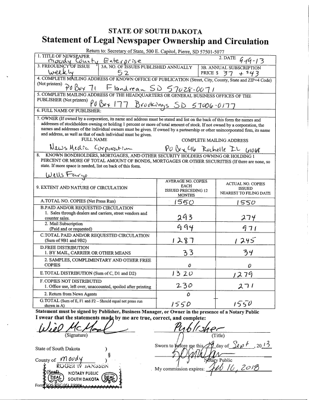 STATE OF SOUTH DAKOTA
Statement of Legal Newspaper Ownership and Circulation
Return to: Secretary of State, 500 E. Capitol, Pierre, SD 57501-5077
1. TITLE OF NEWSPAPER
Moody County Enterprise
2. DATE 9-19-13
3. FREQUENCY OF ISSUE
weekly
3A. NO. OF ISSUES PUBLISHED ANNUALLY
52
3B. ANNUAL SUBSCRIPTION
PRICE $ 37 + $43
4. COMPLETE MAILING ADDRESS OF KNOWN OFFICE OF PUBLICATION (Street, City, County, State and ZIP+4 Code)
(Not printers) PO Box 71 Flandreau SD 57028-0071
5. COMPLETE MAILING ADDRESS OF THE HEADQUARTERS OR GENERAL BUSINESS OFFICES OF THE
PUBLISHER (Not printers) PO Box 177 Brookings SD 57006-0177
6. FULL NAME OF PUBLISHER:
7. OWNER (If owned by a corporation, its name and address must be stated and list on the back of this form the names and
addresses of stockholders owning or holding 1 percent or more of total amount of stock. If not owned by a corporation, the
names and addresses of the individual owners must be given. If owned by a partnership or other unincorporated firm, its name
and address, as well as that of each individual must be given.
FULL NAME
COMPLETE MAILING ADDRESS
News Media Corporation
PO Box 46 Rochelle IL
8. KNOWN BONDHOLDERS, MORTGAGES, AND OTHER SECURITY HOLDERS OWNING OR HOLDING 1
PERCENT OR MORE TOTAL AMOUNT OF BONDS, MORTGAGES OR OTHER SECURITIES (If there are none, so
state. If more space is needed, list on back of this form.
Wells Fargo
9. EXTENT AND NATURE OF CIRCULATION
AVERAGE NO. COPIES
EACH
ISSUED PRECEDING 12
MONTHS
ACTUAL NO. COPIES
ISSUED
NEAREST TO FILING DATE
A. TOTAL NO. COPIES (Net Press Run)
1550
1550
B. PAID AND/OR REQUESTED CIRCULATION
1. Sales through dealers and carriers, street vendors and
counter sales
293
274
2. Mail Subscription
(Paid and or requested)
994
971
C. TOTAL PAID AND/OR REQUESTED CIRCULATION
(Sum of 9B1 and 9B2)
1287
1245
D. FREE DISTRIBUTION
1. BY MAIL, CARRIER OR OTHER MEANS
33
34
2. SAMPLES, COMPLIMENTARY AND OTHER FREE
COPIES
0
0
E. TOTAL DISTRIBUTION (Sum of C, D1 and D2)
1320
1279
F. COPIES NOT DISTRIBUTED
1. Office use, left over, unaccounted, spoiled after printing
230
271
2. Return from News Agents
0
G. TOTAL (Sum of E, F1 and F2 - Should equal net press run
shown in A)
1550
1550
Statement must be signed by Publisher, Business Manager, or Owner in the presence of a Notary Public
I swear that the statements made by me are true, correct, and complete:
Publisher
(Signature)
(Title)
State of South Dakota )
County of Moody )
Sworn to before me this day of Sept, 2013
Notary Public
NOTARY PUBLIC
SOUTH DAKOTA
SEAL
SEAL
My commission expires: 16, 2018